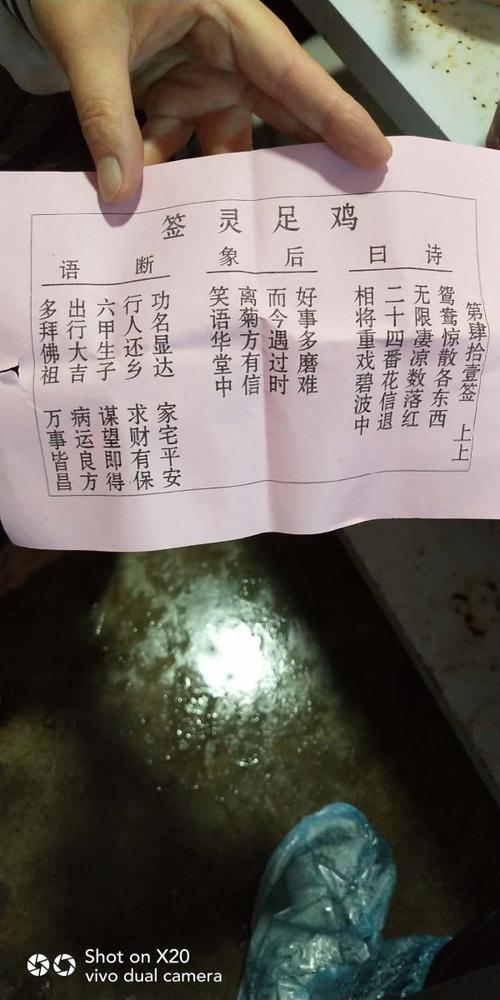 鸡足灵签
第肆拾壹签 上上
诗曰
鸳鸯惊散各东西
无限凄凉数落红
二十四番花信退
相将重戏碧波中
后象
好事多磨难
而今遇过时
离菊方有信
笑语华堂中
断语
功名显达 家宅平安
行人还乡 求财有保
六甲生子 谋望即得
出行大吉 病运良方
多拜佛祖 万事皆昌
Shot on X20
vivo dual camera